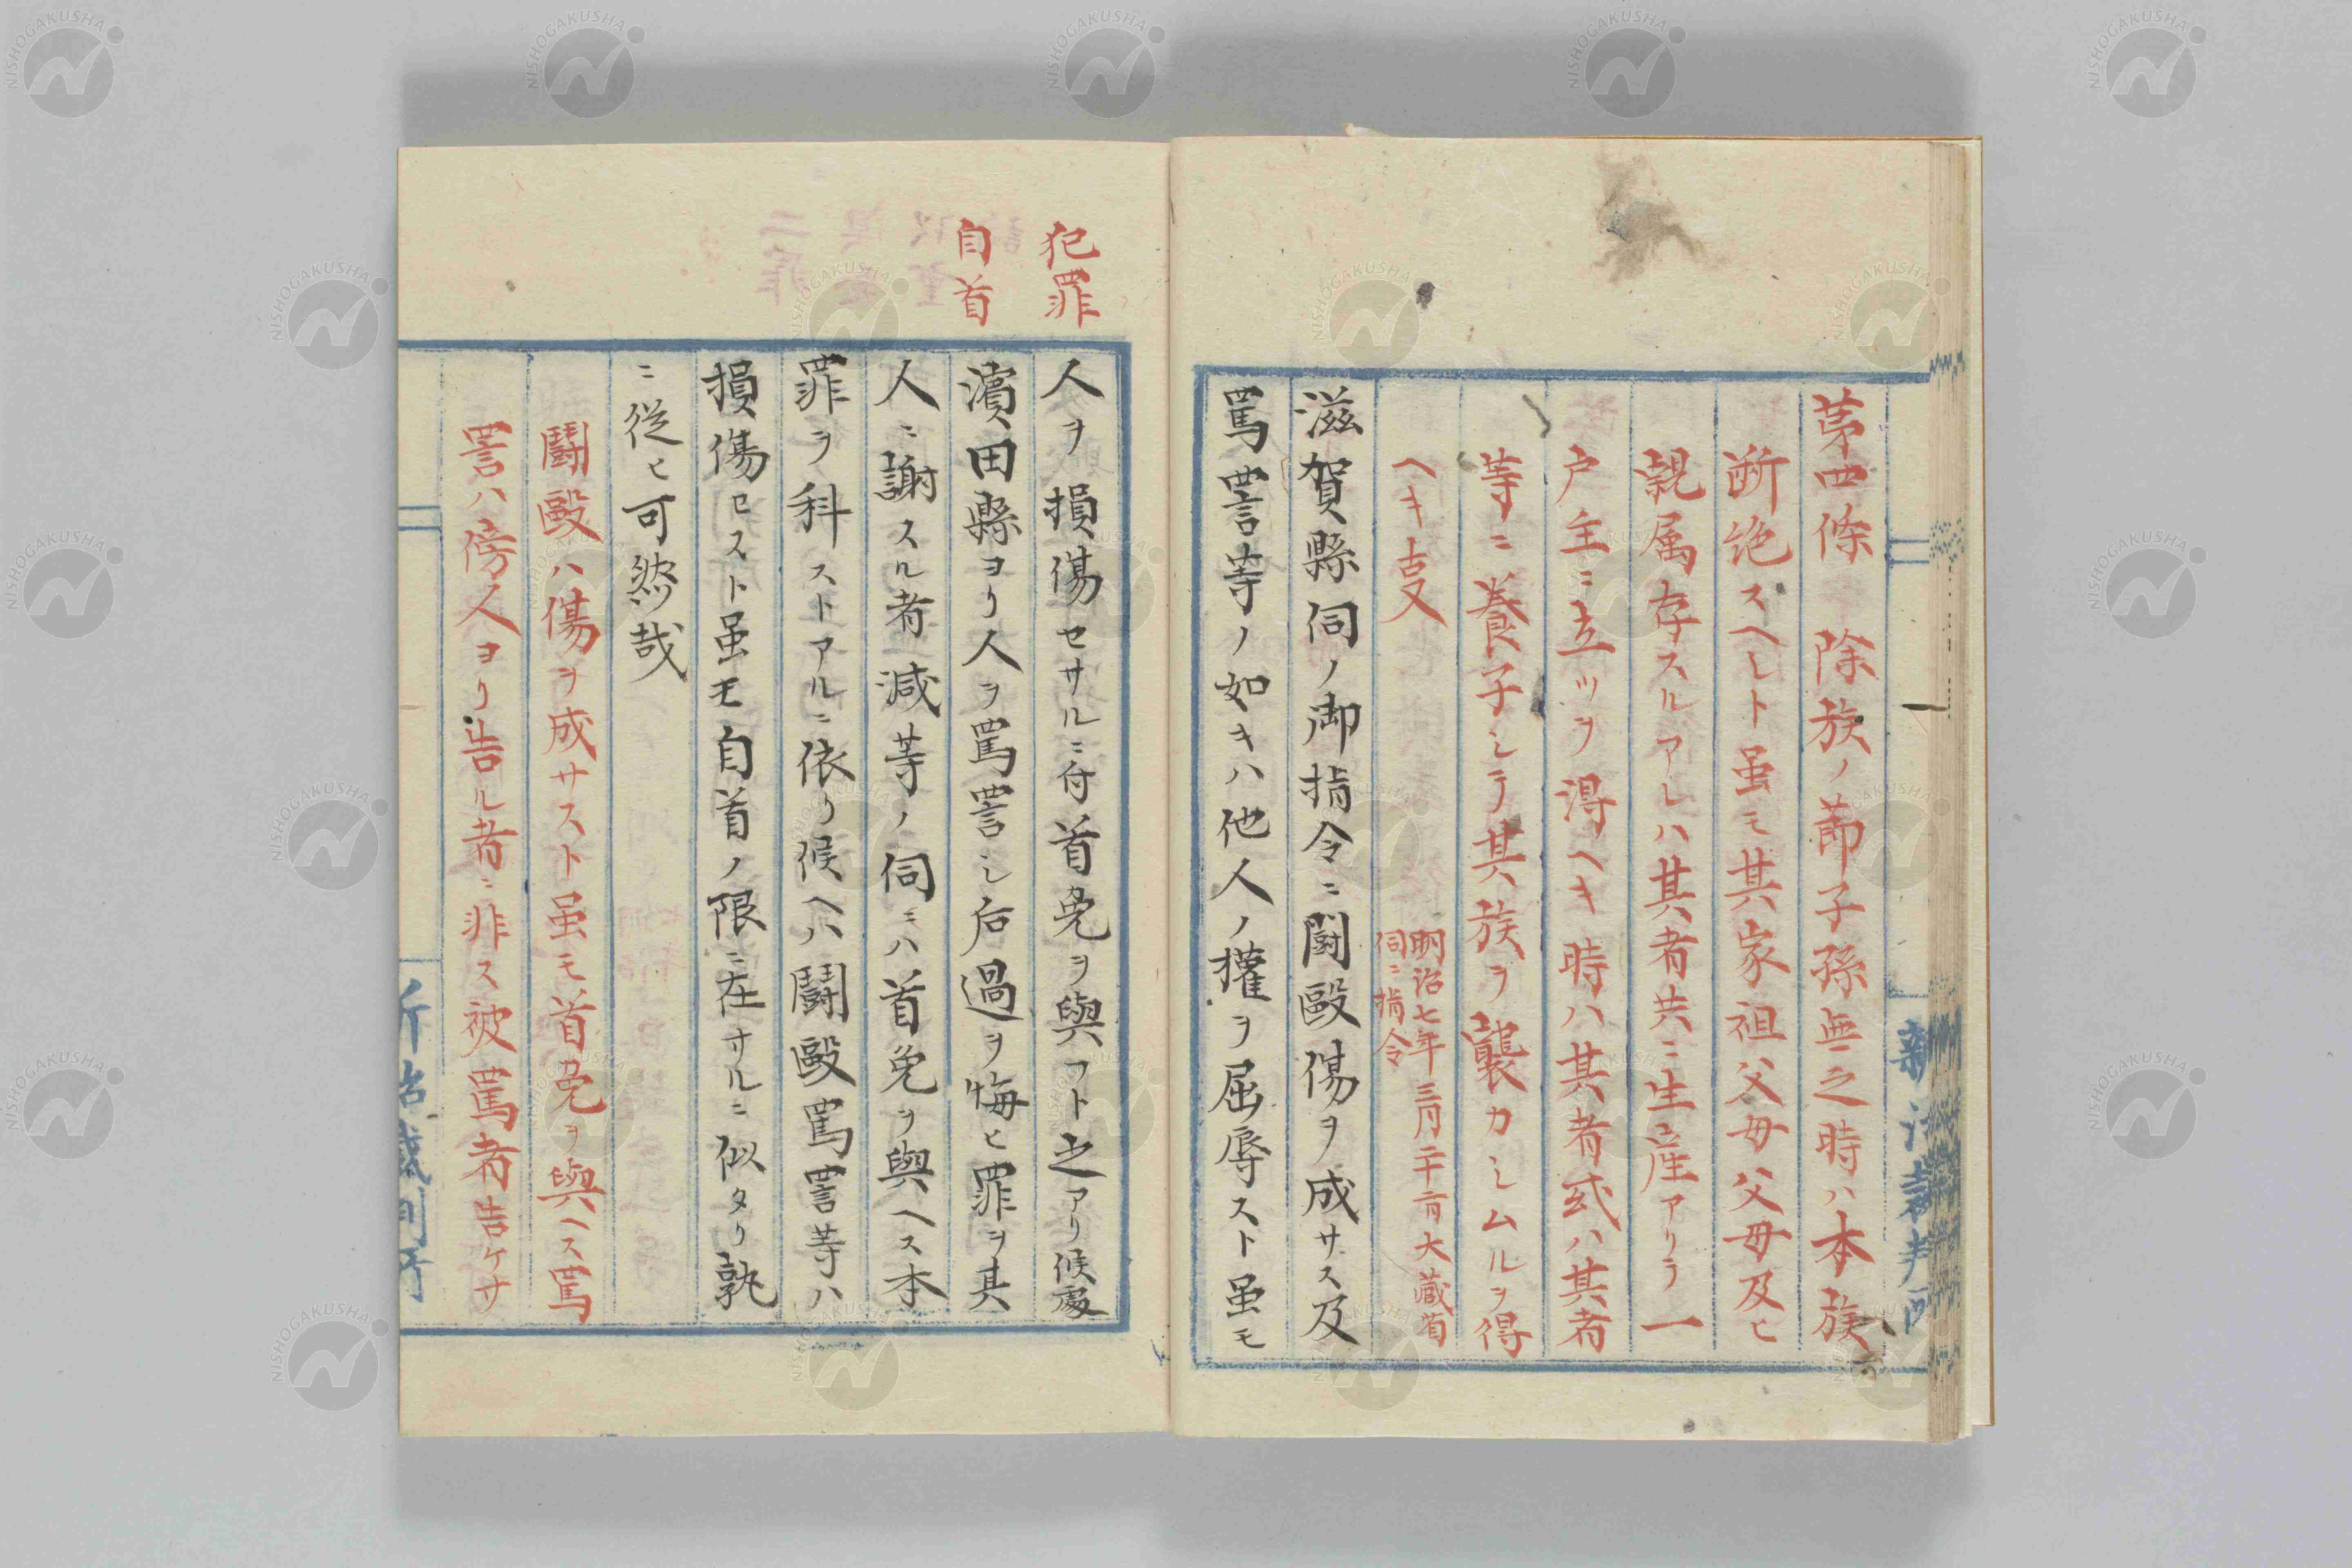 第四條 除族ノ節子孫無之時ハ本族
断絶スヘレト虽モ其家祖父母父母及ヒ
親属存スルアレハ其者共ニ生産アリテ一
戸主ニ立ツヲ得ヘキ時ハ其者或ハ其者
等ニ養子シテ其族ヲ襲カシムルヲ得
ヘキ叓
明治七年三月二十二日大蔵省
伺ニ指令
滋賀縣伺ノ御指令ニ闘毆傷ヲ成サス及
罵詈等ノ如キハ他人ノ權ヲ屈辱スト虽モ
犯罪
自首
人ヲ損傷セサルニ付首免ヲ與フト之アリ候處
濱田縣ヨリ人ヲ罵詈シ后過ヲ悔ヒ罪ヲ其
人ニ謝スル者减等ノ伺ニハ首免ヲ與ヘス本
罪ヲ科ストアルニ依リ候ヘハ鬪毆罵詈等ハ
損傷セスト虽モ自首ノ限ニ在サルニ似タリ孰
ニ從ヒ可然哉
鬪毆ハ傷ヲ成サスト虽モ首免ヲ與ヘス罵
詈ハ傍人ヨリ告ル者ニ非ス被罵者告ケサ
新治裁判所
新治裁判所
NISHOGAKUSHA